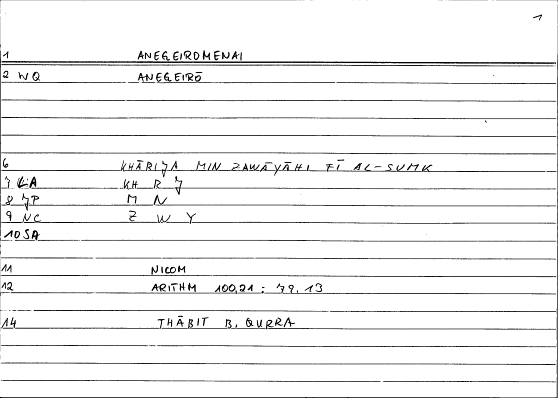 1
1 ANEGEIROMENAI
2 WQ ANEGEIRŌ
6 KHĀRIJA MIN ZAWĀYĀHI FĪ AL-SUMK
7 LA KH R J
8 JP M N
9 NC Z W Y
10 SA
11 NICOM
12 ARITHM 100,21 : 79,13
14 THĀBIT B. QURRA